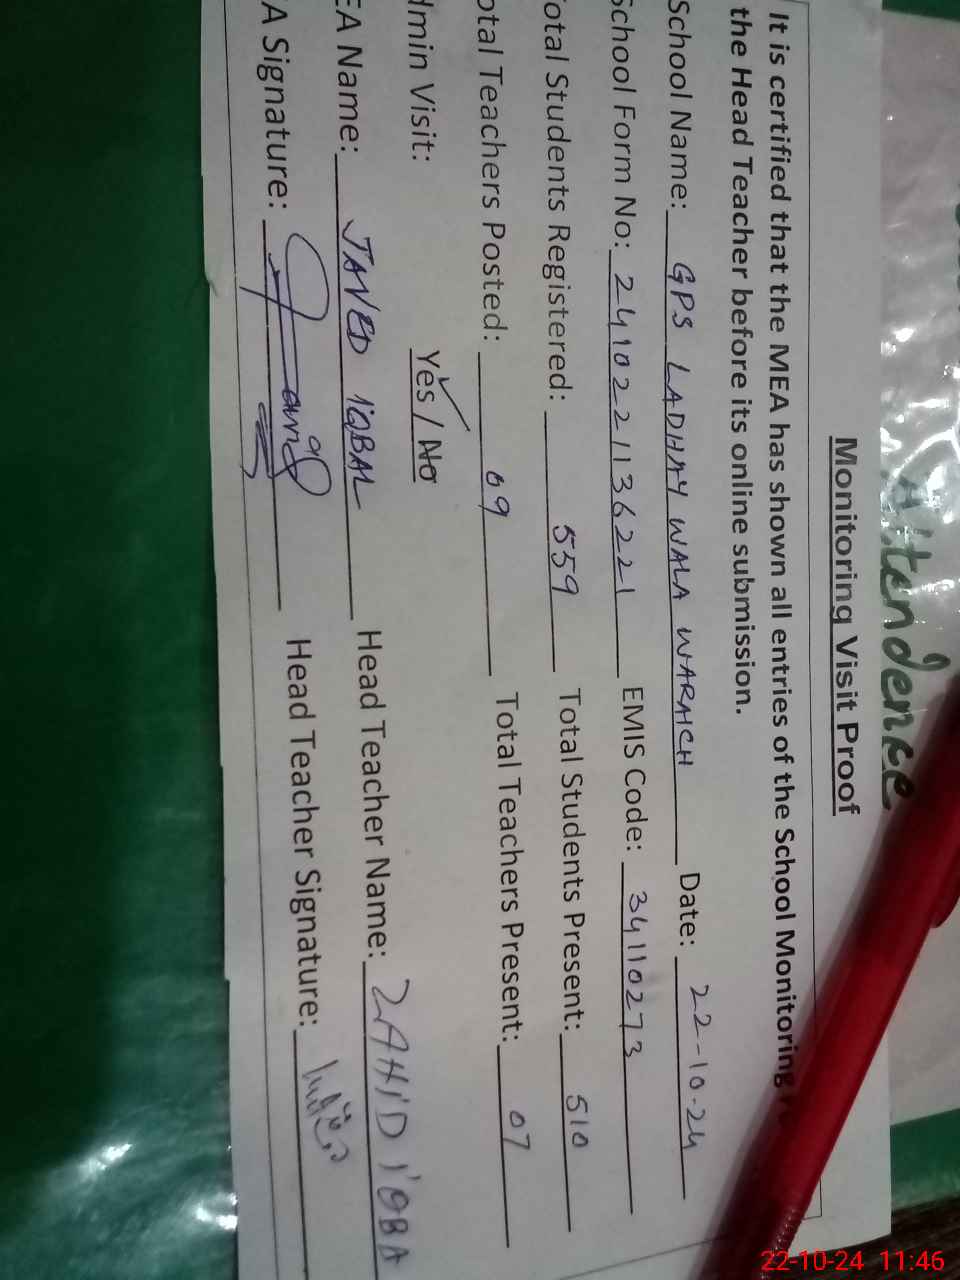 Attendence
Monitoring Visit Proof
It is certified that the MEA has shown all entries of the School Monitoring
the Head Teacher before its online submission.
School Name: GPS LADHAY WALA WARAICH Date: 22-10-24
School Form No: 2410221136221 EMIS Code: 34110273
otal Students Registered: 559 Total Students Present: 510
otal Teachers Posted: 09 Total Teachers Present: 07
dmin Visit: Yes / No
EA Name: JAVED IQBAL Head Teacher Name: ZAHID IQBA
A Signature: Head Teacher Signature:
22-10-24 11:46